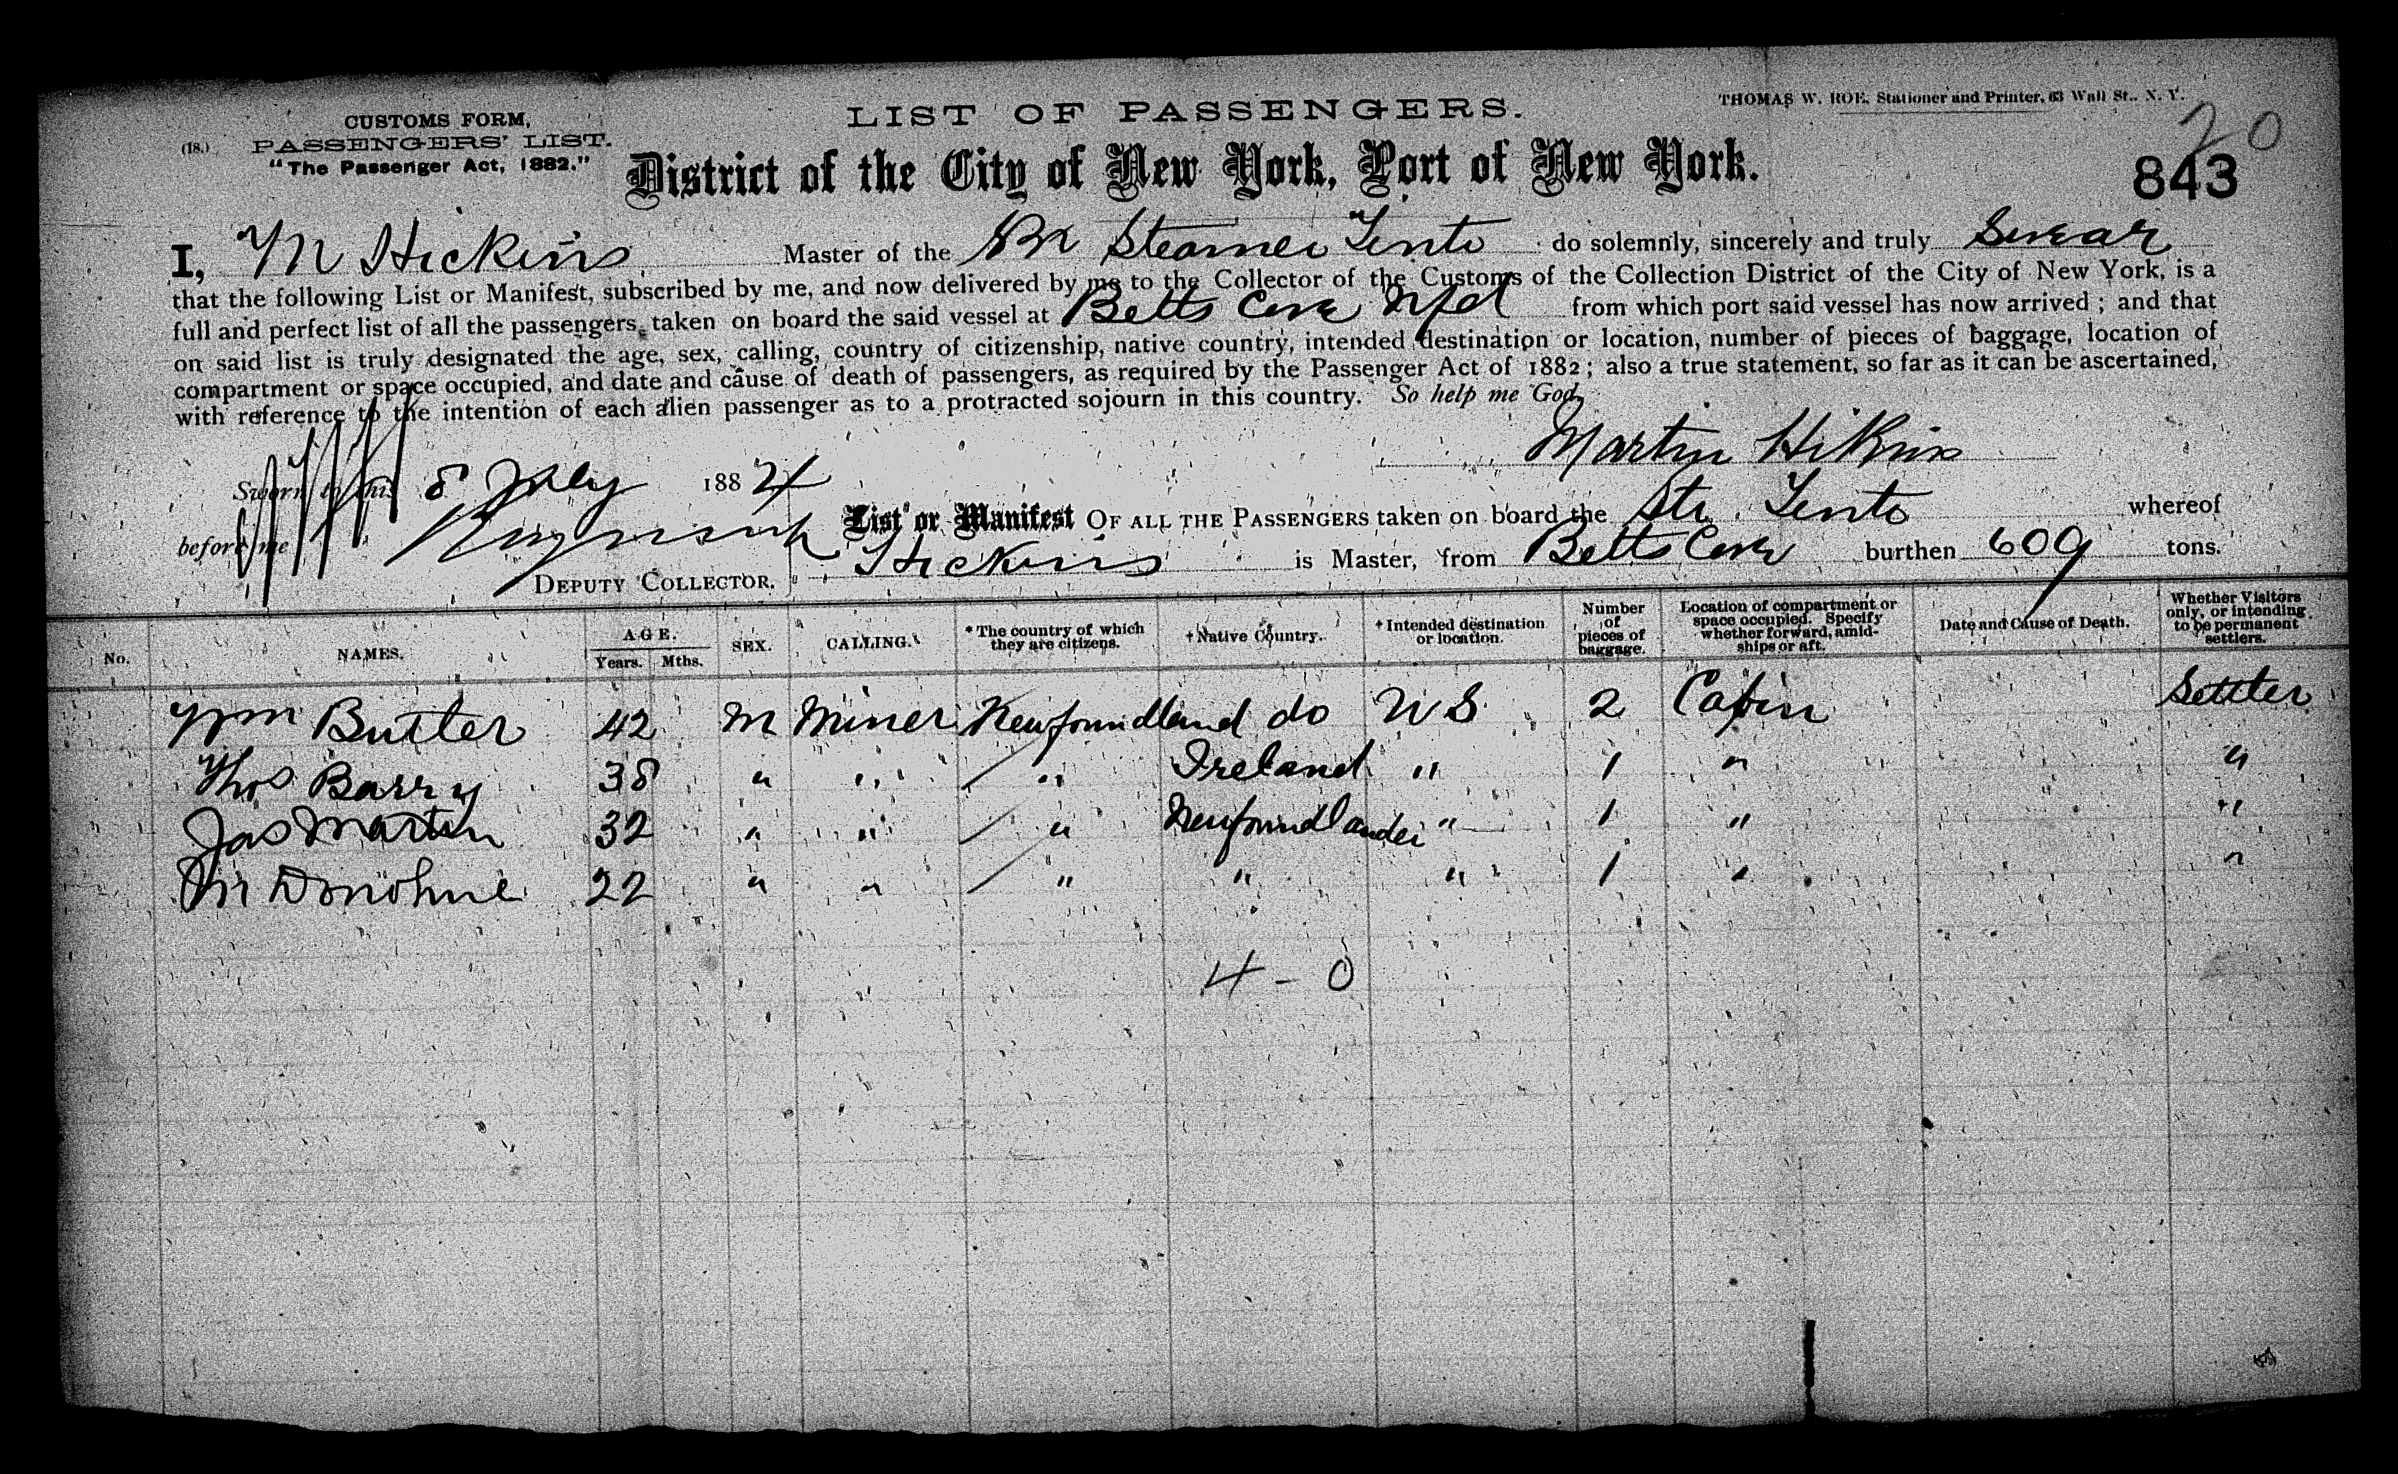 CUSTOMS FORM,
(18.) PASSENGERS' LIST.
"The Passenger Act, 1882."
LIST OF PASSENGERS.
THOMAS W. ROE, Stationer and Printer, 63 Wall St., N. Y.
20
District of the City of New York, Port of New York.
843
I, M Hickins Master of the Br Steamer Tento do solemnly, sincerely and truly Swear
that the following List or Manifest, subscribed by me, and now delivered by me to the Collector of the Customs of the Collection District of the City of New York, is a
full and perfect list of all the passengers taken on board the said vessel at Betts Cove Nfd from which port said vessel has now arrived; and that
on said list is truly designated the age, sex, calling, country of citizenship, native country, intended destination or location, number of pieces of baggage, location of
compartment or space occupied, and date and cause of death of passengers, as required by the Passenger Act of 1882; also a true statement, so far as it can be ascertained,
with reference to the intention of each alien passenger as to a protracted sojourn in this country. So help me God,
Martin Hikins
Sworn to this 8 July 1884
before me
DEPUTY COLLECTOR.
List or Manifest OF ALL THE PASSENGERS taken on board the Str. Tento whereof
Hickins is Master, from Betts Cove burthen 609 tons.
No. NAMES. AGE. Years. Mths. SEX. CALLING. * The country of which they are citizens. † Native Country. * Intended destination or location. Number of pieces of baggage. Location of compartment or space occupied. Specify whether forward, amidships or aft. Date and Cause of Death. Whether Visitors only, or intending to be permanent settlers.
Wm Butler 42 M Miner Newfoundland do U S 2 Cabin Settler
Thos Barry 38 " " " Ireland " 1 " "
Jas Martin 32 " " " Newfoundlander " 1 " "
Donohue 22 " " " " " 1 " "
4 - 0